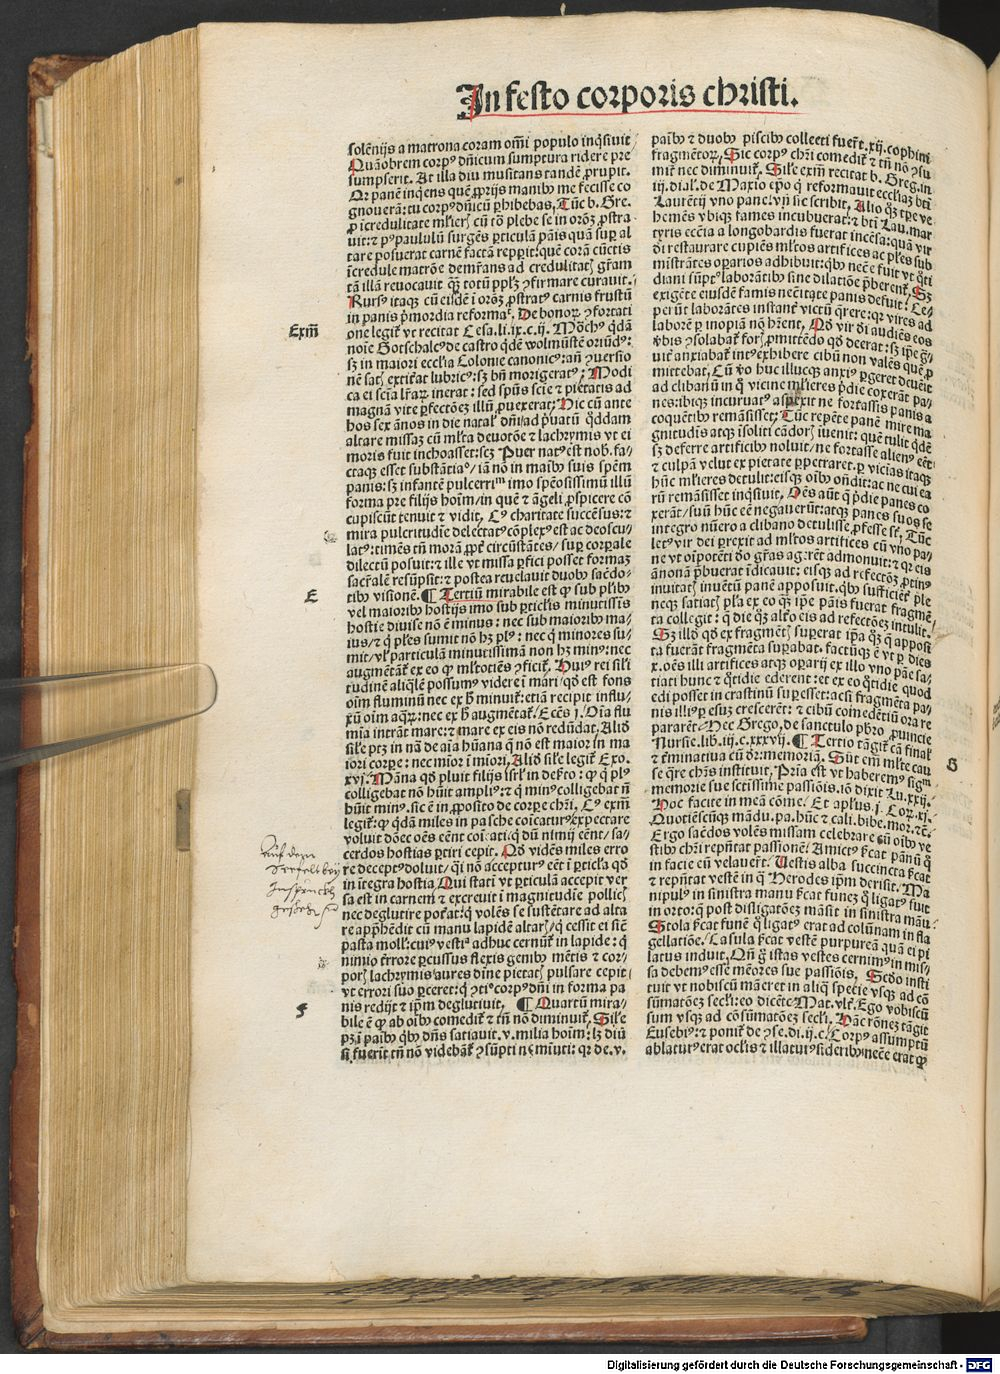 In festo corporis christi.
solẽnijs a matrona coram om̃i populo inq̃siuit
Quãobrem corpꝰ dñicum sumptura ridere pre
sumpserit. At illa diu musitans tandẽ ꝓrupit.
Qꝛ panẽ inquẽs quẽ ꝓprijs manibꝰ me fecisse co
gnouerã: tu corpꝰ dñicũ ꝑhibebas. Tũc b. Gre.
ꝓ ĩcredulitate ml̃ieri cũ tõ plebe se in orõꝫ ꝓstra
uit: ⁊ pꝰ paululũ surgẽs ꝑticulã pãis quã suꝑ al
tare posuerat carnẽ factã repꝑit: quẽ corã cũctis
ĩcredule matrõe demr̃ans ad credulitatꝫ gr̃am
tã illã reuocauit qꝫ totũ pplꝫ ꝯfirmare curauit.
Rursꝰ itaqꝫ cũ eisdẽ ĩ orõꝫ ꝓstratꝰ carnis frustũ
in panis pͥmordia reformat. De honoꝝ ꝯfortati
Exm̃
one legit̃ vt recitat Cesa. li. ix. c. ij. Mõchꝰ q̃dã
noĩe Gotschalcꝰ de castro q̃dẽ wolmũste oriũdꝰ:
sꝫ in maiori ecclĩa Colonie canonicꝰ: añ ꝯuersio
nẽ satꝫ extit̃at lubricꝰ: sꝫ bñ morigeratꝰ; Modi
ca ei scĩa lr̃aꝝ inerat: sed spũs scie ⁊ pietatis ad
magnã vite ꝑfectõeꝫ illũ ꝓuexerat; Hic cũ ante
hos sex ãnos in die natal̃ dñi ad pͥuatũ q̃ddam
altare missaꝫ cũ ml̃ta deuotõe ⁊ lachrymis vt ei
moris fuit inchoasset: scꝫ Puer natꝰ est nob. fa/
ctaqꝫ esset substãtiaͦ/ iã nõ in maĩbꝰ suis spẽm
panis: sꝫ infantẽ pulcerriᵐ imo spẽosissimũ illũ
forma pre filijs hoĩm/ in quẽ ⁊ ãgeli ꝓspicere cõ
cupiscũt tenuit ⁊ vidit. Cꝰ charitate succẽsus: ⁊
mira pulcritudĩe delectatꝰ cõplexꝰ est ac deoscu/
latꝰ: timẽs tñ morã ꝓpt̃ circũstãtes/ suꝑ corꝑale
dilectũ posuit: ⁊ ille vt missa ꝑfici posset formaꝫ
sacr̃alẽ resũpsit: ⁊ postea reuelauit duobꝰ sacẽdo/
E
tibꝰ visionẽ. ¶ Tertiũ mirabile est ꝙ sub pl̃ibꝰ
vel maioribꝰ hostijs imo sub ꝑticlis minutissis
hostie diuise nõ ẽ minus: nec sub maioribꝰ ma/
iꝰ/ ⁊ q̃ pl̃es sumit nõ hꝫ plꝰ: nec q̃ minores su/
mit/ vl̃ particulã minutissimã non hꝫ minꝰ: nec
augmẽtat̃ ex eo ꝙ ml̃totiẽs ꝯficit̃. Huiꝰ rei sil̃i
tudinẽ aliq̃lẽ possumꝰ videre ĩ mari/ qd̃ est fons
oĩm fluminũ nec ex h̃ minuit̃: etiã recipit influ/
xũ oĩm aq̃ꝝ: nec ex h̃ augmẽtat̃. Ecẽs j. Oĩa flu
mĩa intrãt mare: ⁊ mare ex eis nõ redũdat. Aliđ
sil̃e ptꝫ in nã de aĩa hũana q̃ nõ est maior in ma
iori corꝑe: nec mior ĩ miori. Aliđ sil̃e legit̃ Exo.
xvj. Mãna qđ pluit filijs isrl̃ in defto: ꝙ q̃ plꝰ
colligebat nõ hũit ampliꝰ: ⁊ q̃ minꝰ colligebat ñ
hũit minꝰ. sic ẽ in ꝓposito de corꝑe chri. Cꝰ exm̃
legit̃: ꝙ q̃dã miles in pasche coĩcaturꝰ/ expectare
voluit dõec oẽs eẽnt coĩcati: q̃ dũ nimij eẽnt/ sa/
cerdos hostias ꝑtiri cepit. Qđ vidẽs miles erro
Auf dem
Seefelt bey
Insprückh
re deceptꝰ doluit/ q̃i nõ accepturꝰ eẽt ĩ ꝑticla qđ
in ĩtegra hostia. Qui stati vt ꝑticulã accepit ver
sa est in carnem ⁊ excreuit ĩ magnitudiẽ pollicꝫ
nec deglutire poter̃at: q̃ volẽs se sustẽtare ad alta
re apphẽdit cũ manu lapidẽ altarꝫ/ q̃ cessit ei siẽ
pasta moll: cuiꝰ vestiᵃ adhuc cernũt̃ in lapide: q̃
nimio t̃rore ꝑcussus flexis genibꝰ mẽtis ⁊ cor/
poꝝ lachrymis aures dñe pietatꝫ pulsare cepit
vt errori suo ꝑceret: q̃ ꝯtiᵒ corpꝰ dñi in forma pa
F
nis redijt ⁊ ip̃m deglutiuit. ¶ Quartũ mira/
bile ẽ ꝙ ab oĩbꝰ comedit̃ ⁊ tñ nõ diminuit̃. Sil̃e
ptꝫ ĩ paĩbꝰ q̃bꝰ dñs satiauit .v. milia hoĩm: lꝫ diũ
si fuerit tñ nõ videbãt̃ ꝯsũpti nec miuti: qꝛ de .v.
paĩbꝰ ⁊ duobꝰ piscibꝰ collecti fuer̃t .xij. cophini
fragmẽtoꝝ. Sic corpꝰ chri comedit̃ ⁊ tñ nõ ꝯsu
mit̃ nec diminuit̃. Sil̃e exm̃ recitat b. Greg. in
iij. dial. de Maxio ep̃o q̃ reformauit ecclĩaꝫ bti
Laurẽtij vno pane. vñ sic scribit. Alio q̃ꝫ tꝑe ve
hemẽs vbiqꝫ fames incubuerat: ⁊ bti Lau. mar
tyris eccĩa a longobardis fuerat incẽsa: quã vir
di restaurare cupiẽs ml̃tos artifices ac pl̃es sub
mistrãtes oꝑarios adhibuit: q̃bꝰ necẽ fuit vt q̃ti
diani sũptꝰ laborãtibꝰ sine dilatiõe pͥberent̃. Sꝫ
exigẽte eiusdẽ famis necẽitate panis defuit: Ce/
peñt laborãtes instant̃ victũ q̃rere: qꝛ vires ad
laborẽ ꝑ inopiã nõ hẽrent. Qđ vir di audiẽs eos
ṽbis ꝯsolabat̃ forꝫ ꝓmittẽdo qđ deerat: sꝫ ip̃e gͣ
uit̃ anxiabat̃ intꝰ exhibere cibũ non valẽs quẽ ꝓ
mittebat. Cũ ṽo huc illucqꝫ anxiꝰ ꝑgeret deueĩt
ad clibanũ in q̃ vicine ml̃ieres pͥdie coxerãt pa/
nes: ibiqꝫ incuruatꝰ aspexit ne fortassis panis a
coquẽtibꝰ remãsisset; Tũc repẽte panẽ mire ma
gnitudis atqꝫ ĩsoliti cãdoris iuenit: quẽ tulit q̃dẽ
sꝫ deferre artificibꝰ noluit/ ne fortasse alienꝰ eẽt:
⁊ culpã velut ex pietate ꝑpetraret. ꝑ vicias itaqꝫ
hũc ml̃ieres detulit: eisqꝫ oĩbꝰ oñdit: ac ne cui ea
rũ remãsisset inq̃siuit. Oẽs aũt q̃ pͥdie panes co
xerãt/ suũ hũc eẽ negauerũt: atqꝫ panes suos se
integro nũero a clibano detulisse ꝓfesse st̃. Tũc
letꝰ vir dei ꝑrexit ad ml̃tos artifices cũ vno pa/
ne vt oĩpotẽti do gr̃as agerẽt admonuit: ⁊ qꝛ eis
ãnonã pͥbuerat ĩdicauit: eisqꝫ ad refectõeꝫ ꝓtinꝰ
inuitatꝫ inuẽtũ panẽ apposuit. q̃bꝰ sufficiẽt̃ ꝑle
neqꝫ satiatꝫ pl̃a ex eo q̃ꝫ ip̃e pãis fuerat fragmẽ/
ta collegit: q̃ die q̃ꝫ alt̃o eis ad refectõeꝫ intulit.
Sꝫ illđ qđ ex fragmẽtꝫ suꝑerat ip̃a q̃ꝫ q̃ apposi
ta fuerãt fragmẽta suꝑabat. factũqꝫ ẽ vt ꝑ dies
x. oẽs illi artifices atqꝫ oꝑarij ex illo vno pãe sa/
tiati hunc ⁊ q̃tidie ederent: et ex eo q̃tidie quod
edi posset in crastinũ suꝑesset: acsi fragmẽta pa/
nis illiꝰ ꝑ esuꝫ crescerẽt: ⁊ cibũ coĩmedẽtiũ ora re
pararẽt. Hec Grego. de sanctulo pbr̃o ꝓuincie
G
Nursie. lib. iij. c. xxxvij. ¶ Tertio tãgit̃ cã final̃
⁊ t̃minatiua cũ dr̃: memoriã. Sũt em̃ ml̃te cau
se q̃re chr̃s instituit. Pria est vt haberemꝰ sigᵐ
memorie sue sctissime passiõis. iõ dixit Lu. xxij.
Hoc facite in meã cõme. Et apl̃us .j. Coꝝ. xj.
Quotiẽscũqꝫ mãdu. pa. hũc ⁊ cali. bibe. mor. ⁊c̃.
Ergo sacẽdos volẽs missam celebrare cũ oĩbꝰ ve
stibꝰ chri rep̃ñtat passionẽ. Amictꝰ sgcat pãnũ q̃
in facie cũ velauer̃t. Uestis alba succincta sgcat
⁊ rep̃ñtat vestẽ in q̃ Herodes ip̃m derisit. Ma
nipulꝰ in sinistra manu sgcat funeꝫ q̃ ligatꝰ fuit
in orto: q̃ post disligatõeꝫ mãsit in sinistra mãu.
Stola sgcat funẽ q̃ ligatꝰ erat ad colũnam in fla
gellatiõe. Casula sgcat vestẽ purpureã quã ei pi
latus induit. Qñ g̃ istas vestes cernimꝰ in mis/
sa debemꝰ esse mẽores sue passiõis. Scđo insti
tuit vt nobiscũ maneret in aliq̃ specie vsqꝫ ad cõ
sũmatõeꝫ secl̃i: eo dicẽte Mat. vlt̃. Ego vobiscũ
sum vsqꝫ ad cõsũmatõeꝫ secl̃i. Hãc rõnẽ tãgit
Eusebiꝰ: ⁊ ponit̃ de ꝯse. di. ij. c. Corpꝰ assumptũ
ablaturꝰ erat oclis ⁊ illaturꝰ sideribꝰ: necẽ erat ꝙ
Digitalisierung gefördert durch die Deutsche Forschungsgemeinschaft - DFG